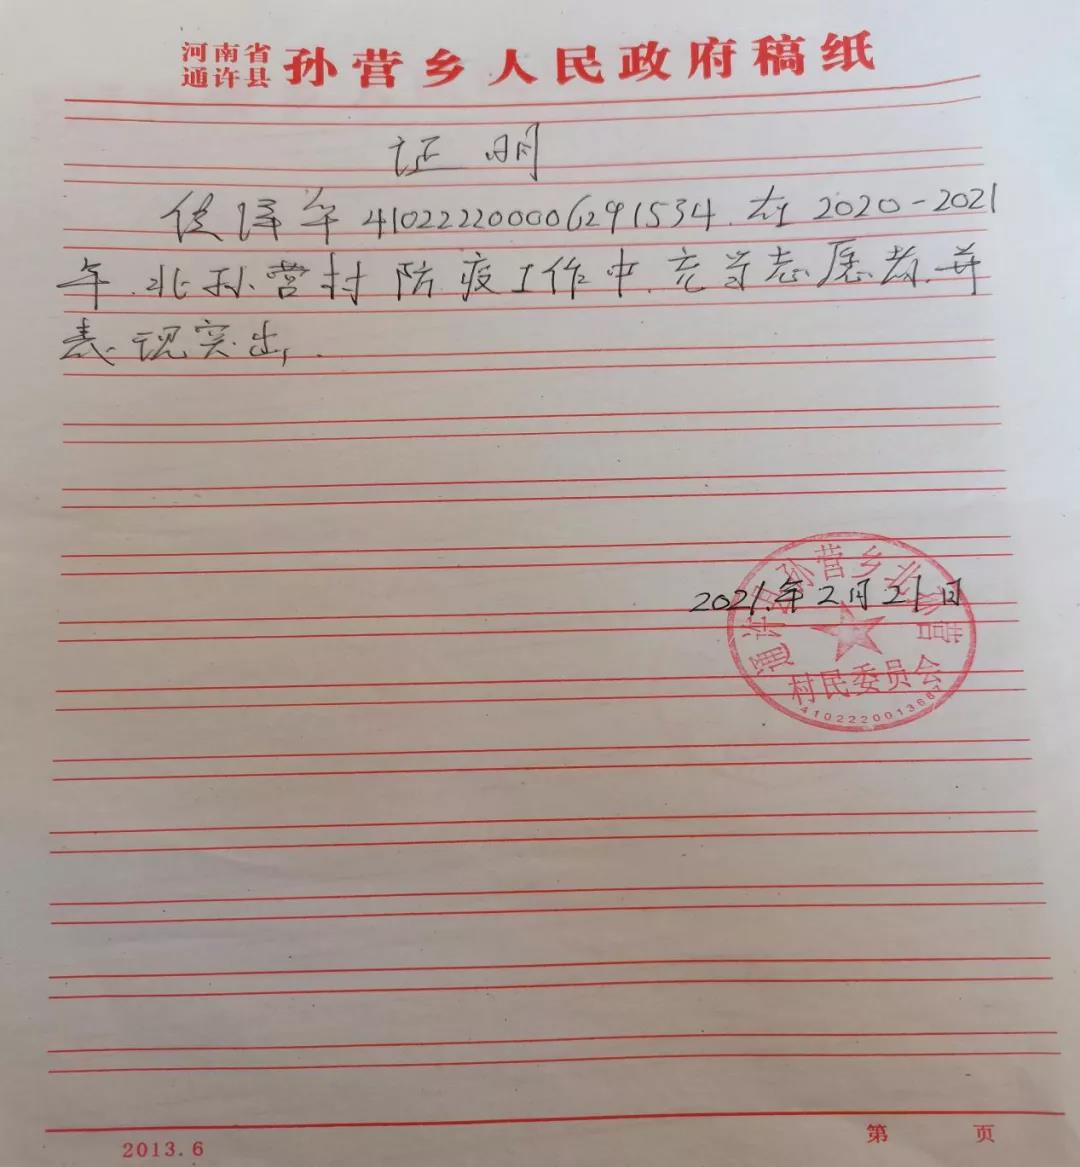 河南省
通许县
孙营乡人民政府稿纸
证明
泽年 410222200006291534 在 2020-2021
年.北孙营村防疫工作中.充当志愿者.并
表现突出.
2021.年2月21日
通许县孙营乡北孙营
村民委员会
2013.6
第 页